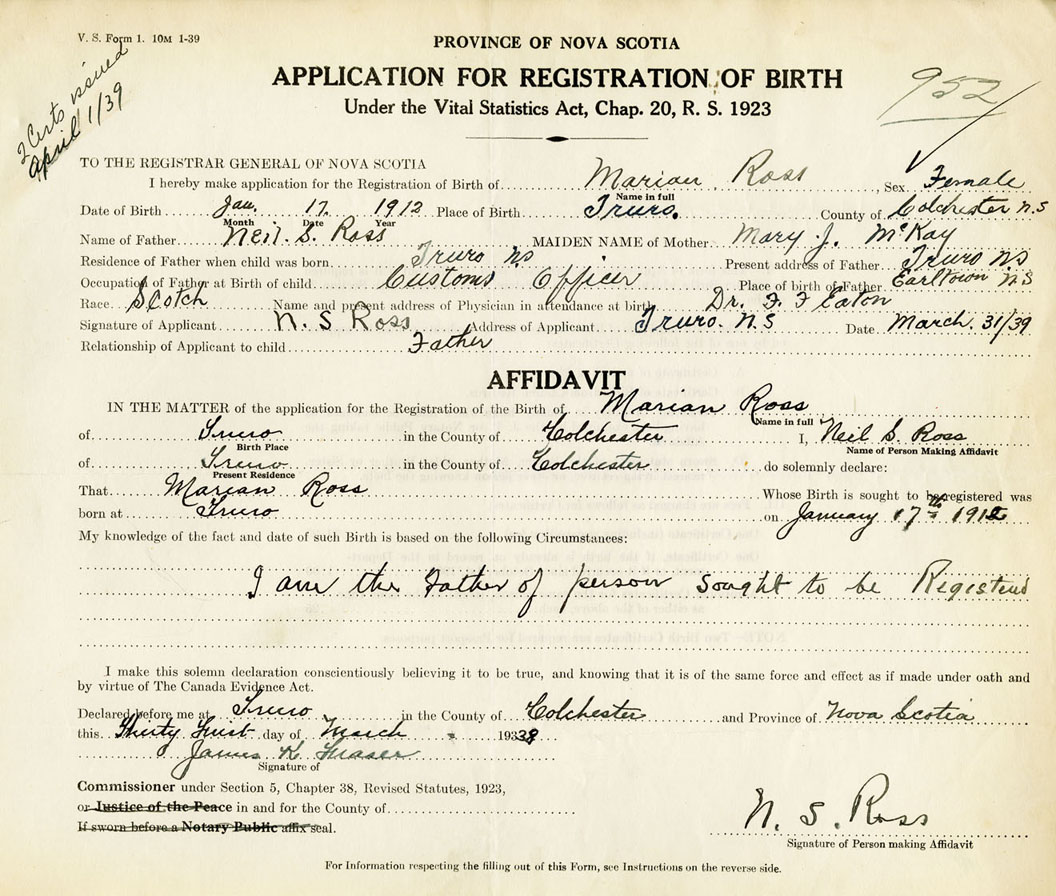 V. S. Form 1. 10M 1-39
2 Certs issued
April 1/39
PROVINCE OF NOVA SCOTIA
APPLICATION FOR REGISTRATION OF BIRTH
952
Under the Vital Statistics Act, Chap. 20, R. S. 1923
TO THE REGISTRAR GENERAL OF NOVA SCOTIA
I hereby make application for the Registration of Birth of Marian Ross Sex Female
Name in full
Date of Birth Jan. 17 1912 Place of Birth Truro. County of Colchester N.S
Month Date Year
Name of Father Neil. S. Ross MAIDEN NAME of Mother Mary J. McKay
Residence of Father when child was born Truro NS Present address of Father Truro NS
Occupation of Father at Birth of child Customs Officer Place of birth of Father Earltown N.S
Race Scotch Name and present address of Physician in attendance at birth Dr. F. F Eaton
Signature of Applicant N. S Ross Address of Applicant Truro. N.S Date March. 31/39
Relationship of Applicant to child Father
AFFIDAVIT
IN THE MATTER of the application for the Registration of the Birth of Marian Ross
Name in full
of Truro in the County of Colchester I, Neil S. Ross
Birth Place Name of Person Making Affidavit
of Truro in the County of Colchester do solemnly declare:
Present Residence
That Marian Ross Whose Birth is sought to be registered was
born at Truro on January 17th 1912
My knowledge of the fact and date of such Birth is based on the following Circumstances:
I am the Father of person sought to be Registered
I make this solemn declaration conscientiously believing it to be true, and knowing that it is of the same force and effect as if made under oath and
by virtue of The Canada Evidence Act.
Declared before me at Truro in the County of Colchester and Province of Nova Scotia
this Thirty First day of March 1939
James K Fraser
Signature of
Commissioner under Section 5, Chapter 38, Revised Statutes, 1923,
or Justice of the Peace in and for the County of
If sworn before a Notary Public affix seal.
N. S. Ross
Signature of Person making Affidavit
For Information respecting the filling out of this Form, see Instructions on the reverse side.